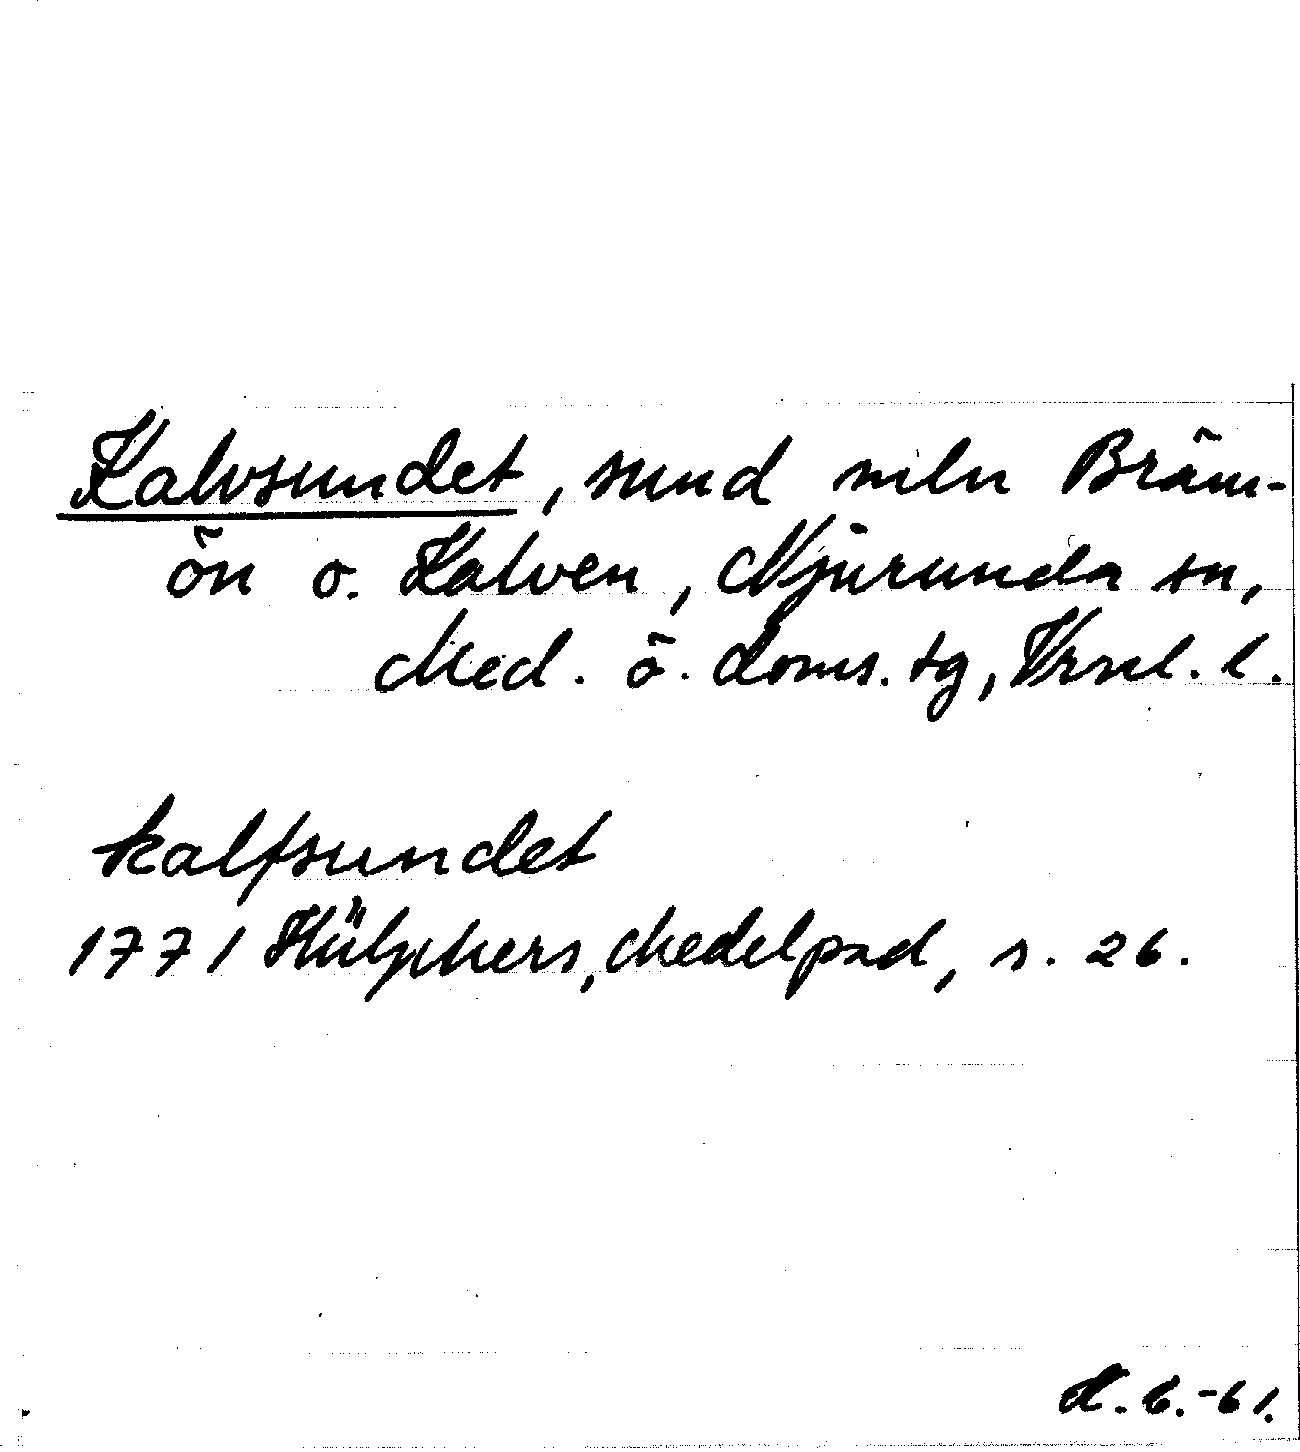 Kalvsundet, sund mln Bräm-
ön o. Kalven, Njurunda sn,
Med. ö. doms. tg, Vrnl. l.
kalfsundet
1771 Hülphers, Medelpad, s. 26.
6.-61.